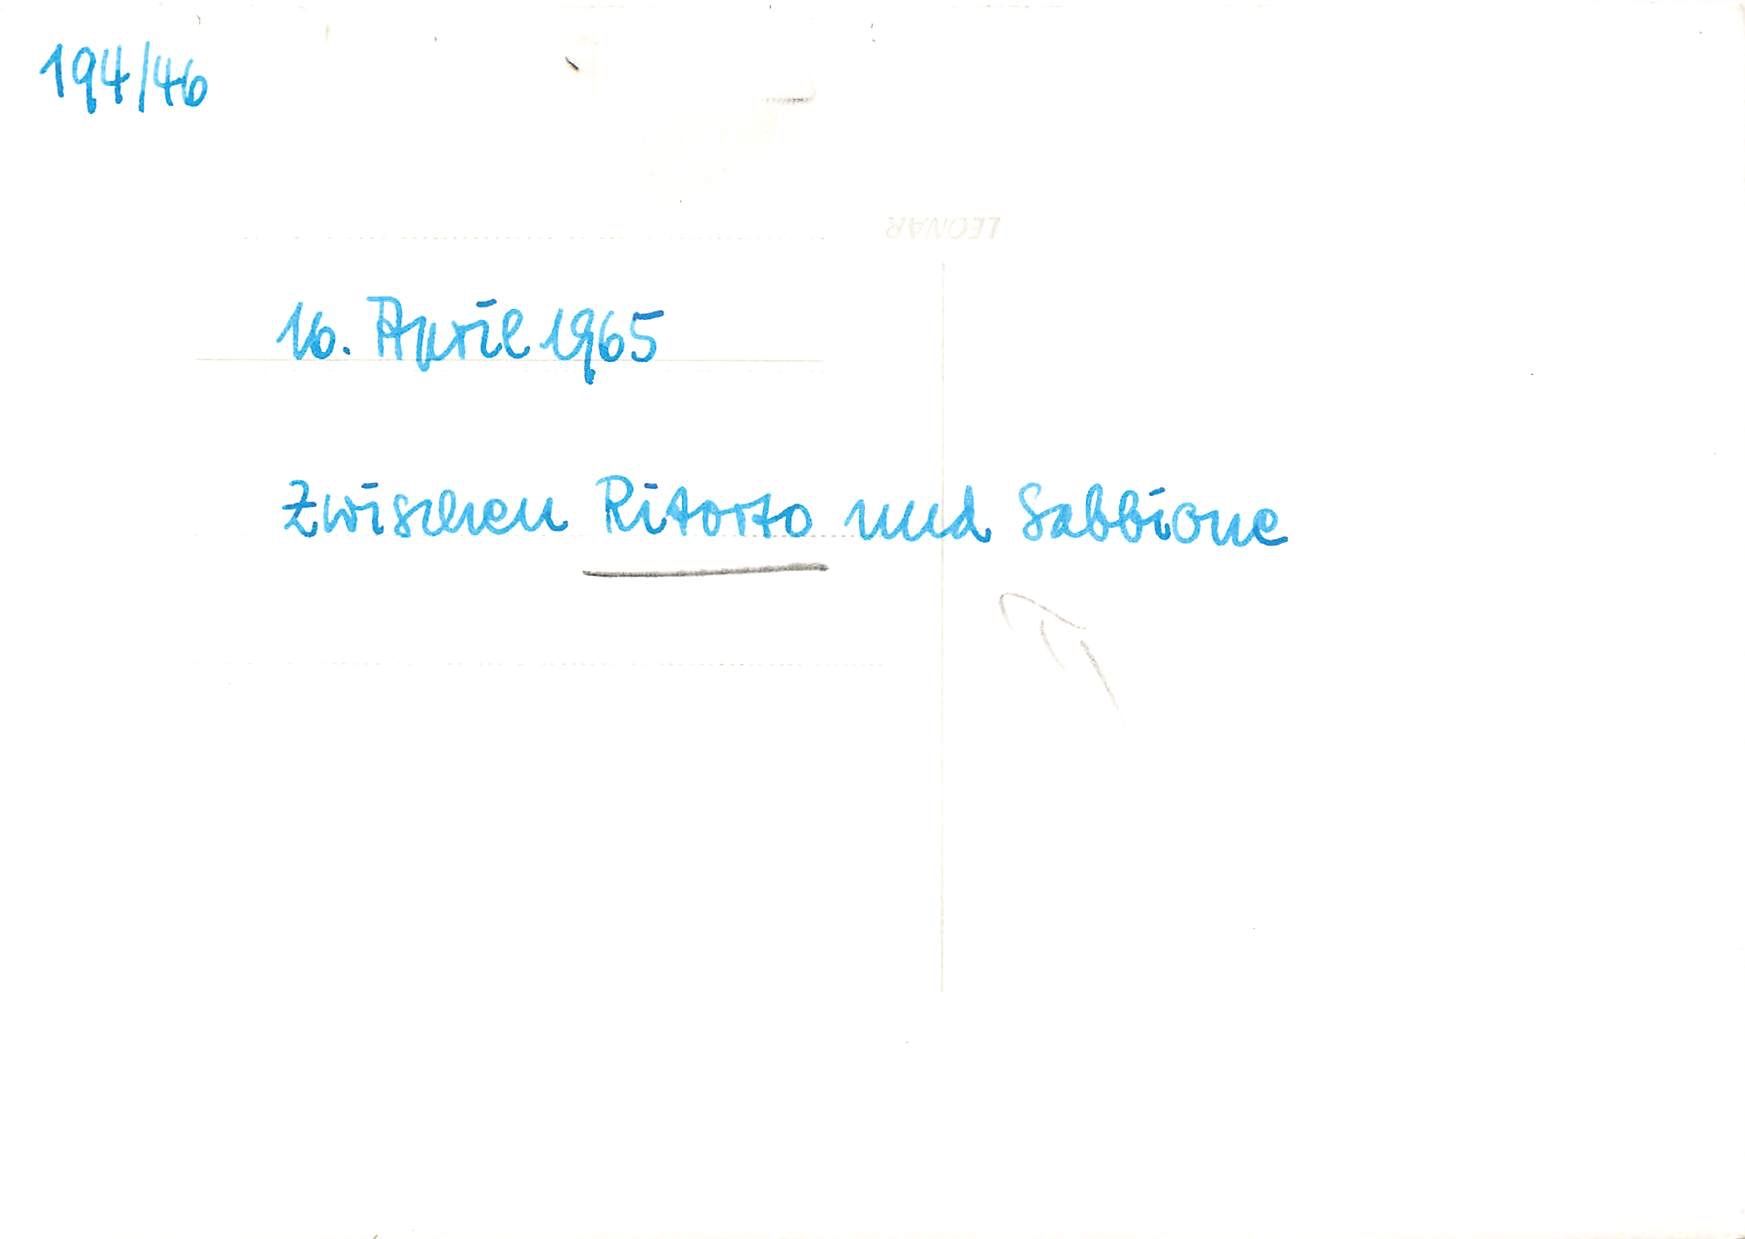 194/46
LEONAR
16. April 1965
Zwischen Ritorto und Sabbione